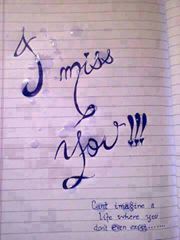 I miss
You!!!
Can't imagine a
life where you
don't even exist.......